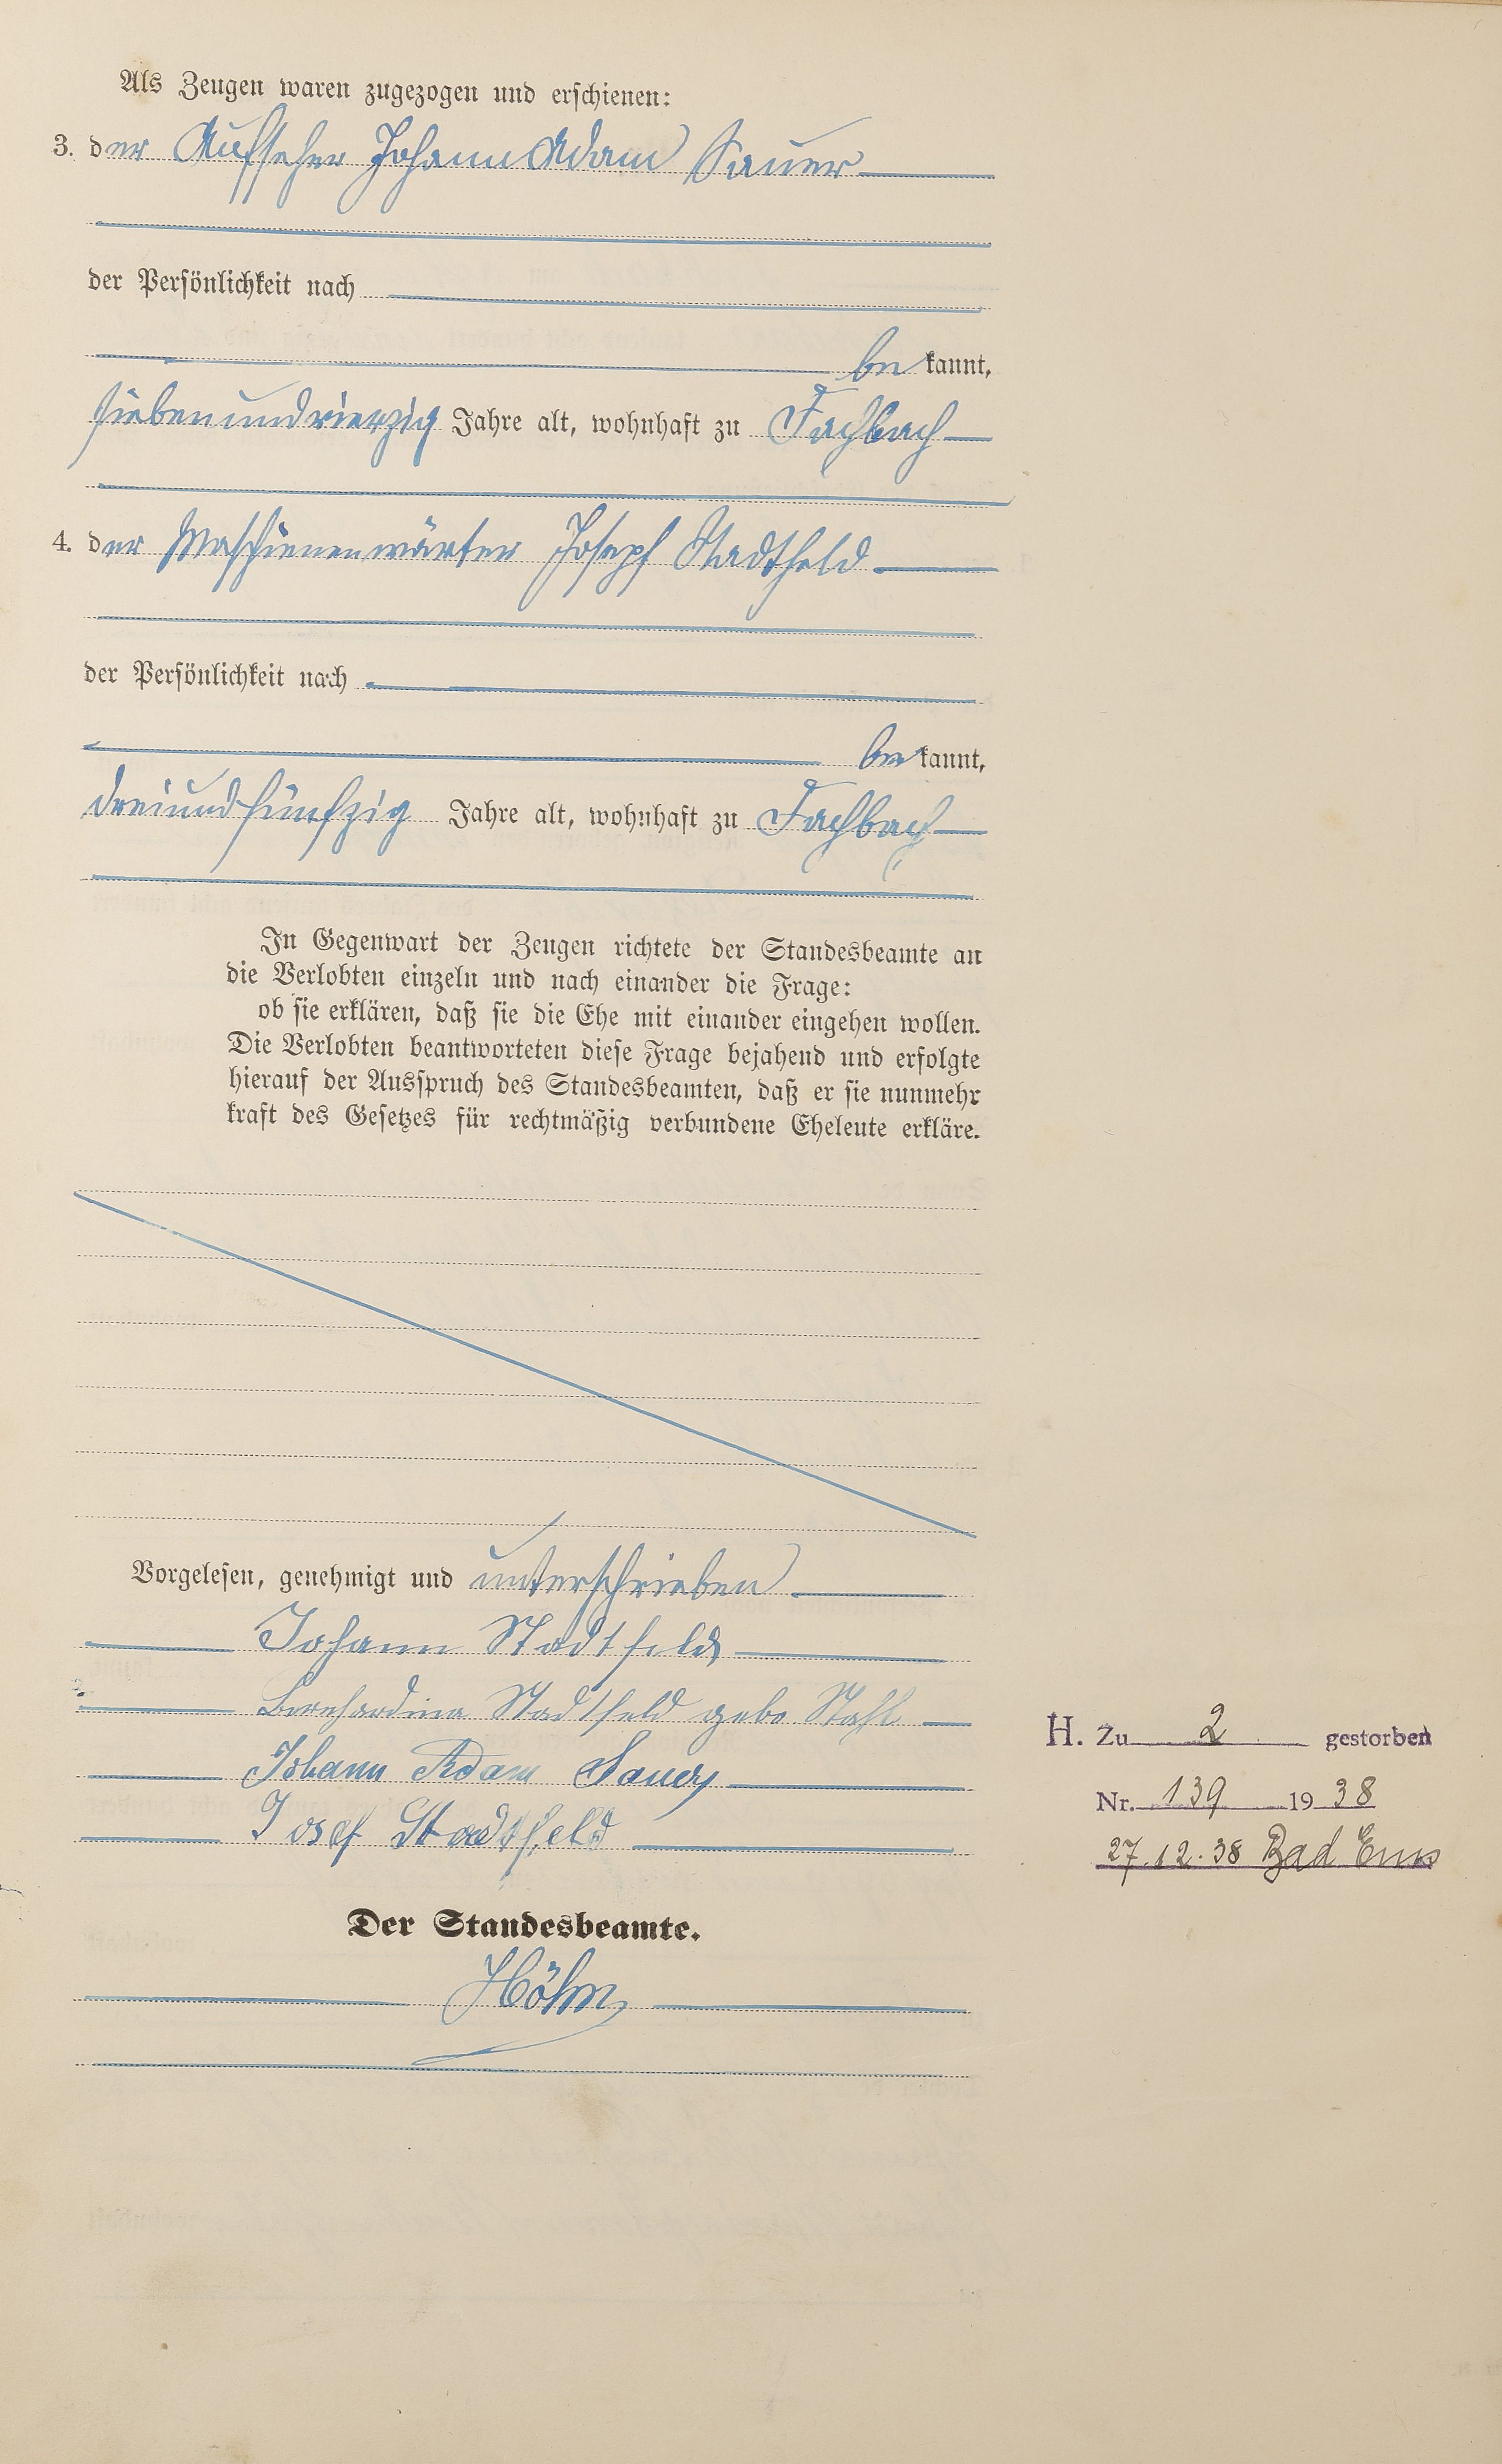 Als Zeugen waren zugezogen und erschienen:
3. der Aufseher Johann Adam Sauer
der Persönlichkeit nach
be kannt,
siebenundvierzig Jahre alt, wohnhaft zu Fachbach
4. der Maschienenwärter Joseph Stadtfeld
der Persönlichkeit nach
be kannt,
dreiundfünfzig Jahre alt, wohnhaft zu Fachbach
In Gegenwart der Zeugen richtete der Standesbeamte an
die Verlobten einzeln und nach einander die Frage:
ob sie erklären, daß sie die Ehe mit einander eingehen wollen.
Die Verlobten beantworteten diese Frage bejahend und erfolgte
hierauf der Ausspruch des Standesbeamten, daß er sie nunmehr
kraft des Gesetzes für rechtmäßig verbundene Eheleute erkläre.
Vorgelesen, genehmigt und unterschrieben
Johann Stadtfeld
Bernhardina Stadtfeld gebo. Stahl
Johann Adam Sauer
Josef Stadtfeld
Der Standesbeamte.
Höhn
H. Zu 2 gestorben
Nr. 139 1938
27.12.38 Bad Ems